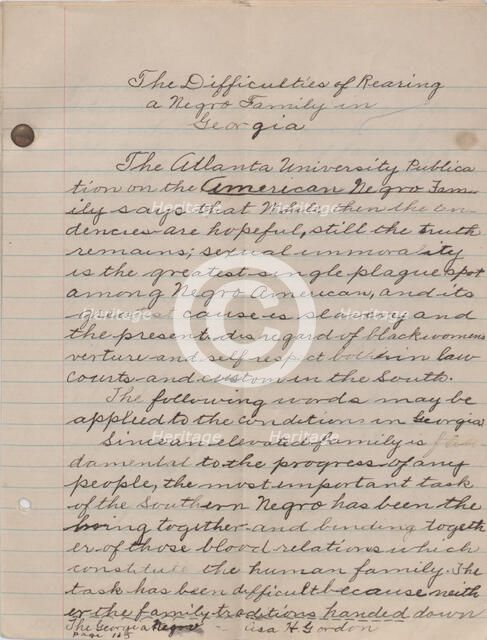 The Difficulties of Rearing
a Negro Family in
Georgia
The Atlanta University Publica
tion on the American Negro Fam-
ily says that While then the ten-
dencies are hopeful, still the truth
remains; sexual immorality
is the greatest single plague spot
among Negro American, and its
greatest cause is slavery and
the present disregard of black womens
verture and self respect both in law
courts and custom in the South.
The following words may be
applied to the conditions in Georgia
Since an elevated family is fun-
damental to the progress of any
people, the most important task
of the Southern Negro has been the
bring together and binding togeth
er of those blood relations which
constitute the human family. The
task has been difficult because neith
er the family traditions handed down
The Georgia Negro -- Asa H Gordon
page 125
Heritage
Heritage
Heritage
Heritage
Heritage
Heritage
Heritage
C